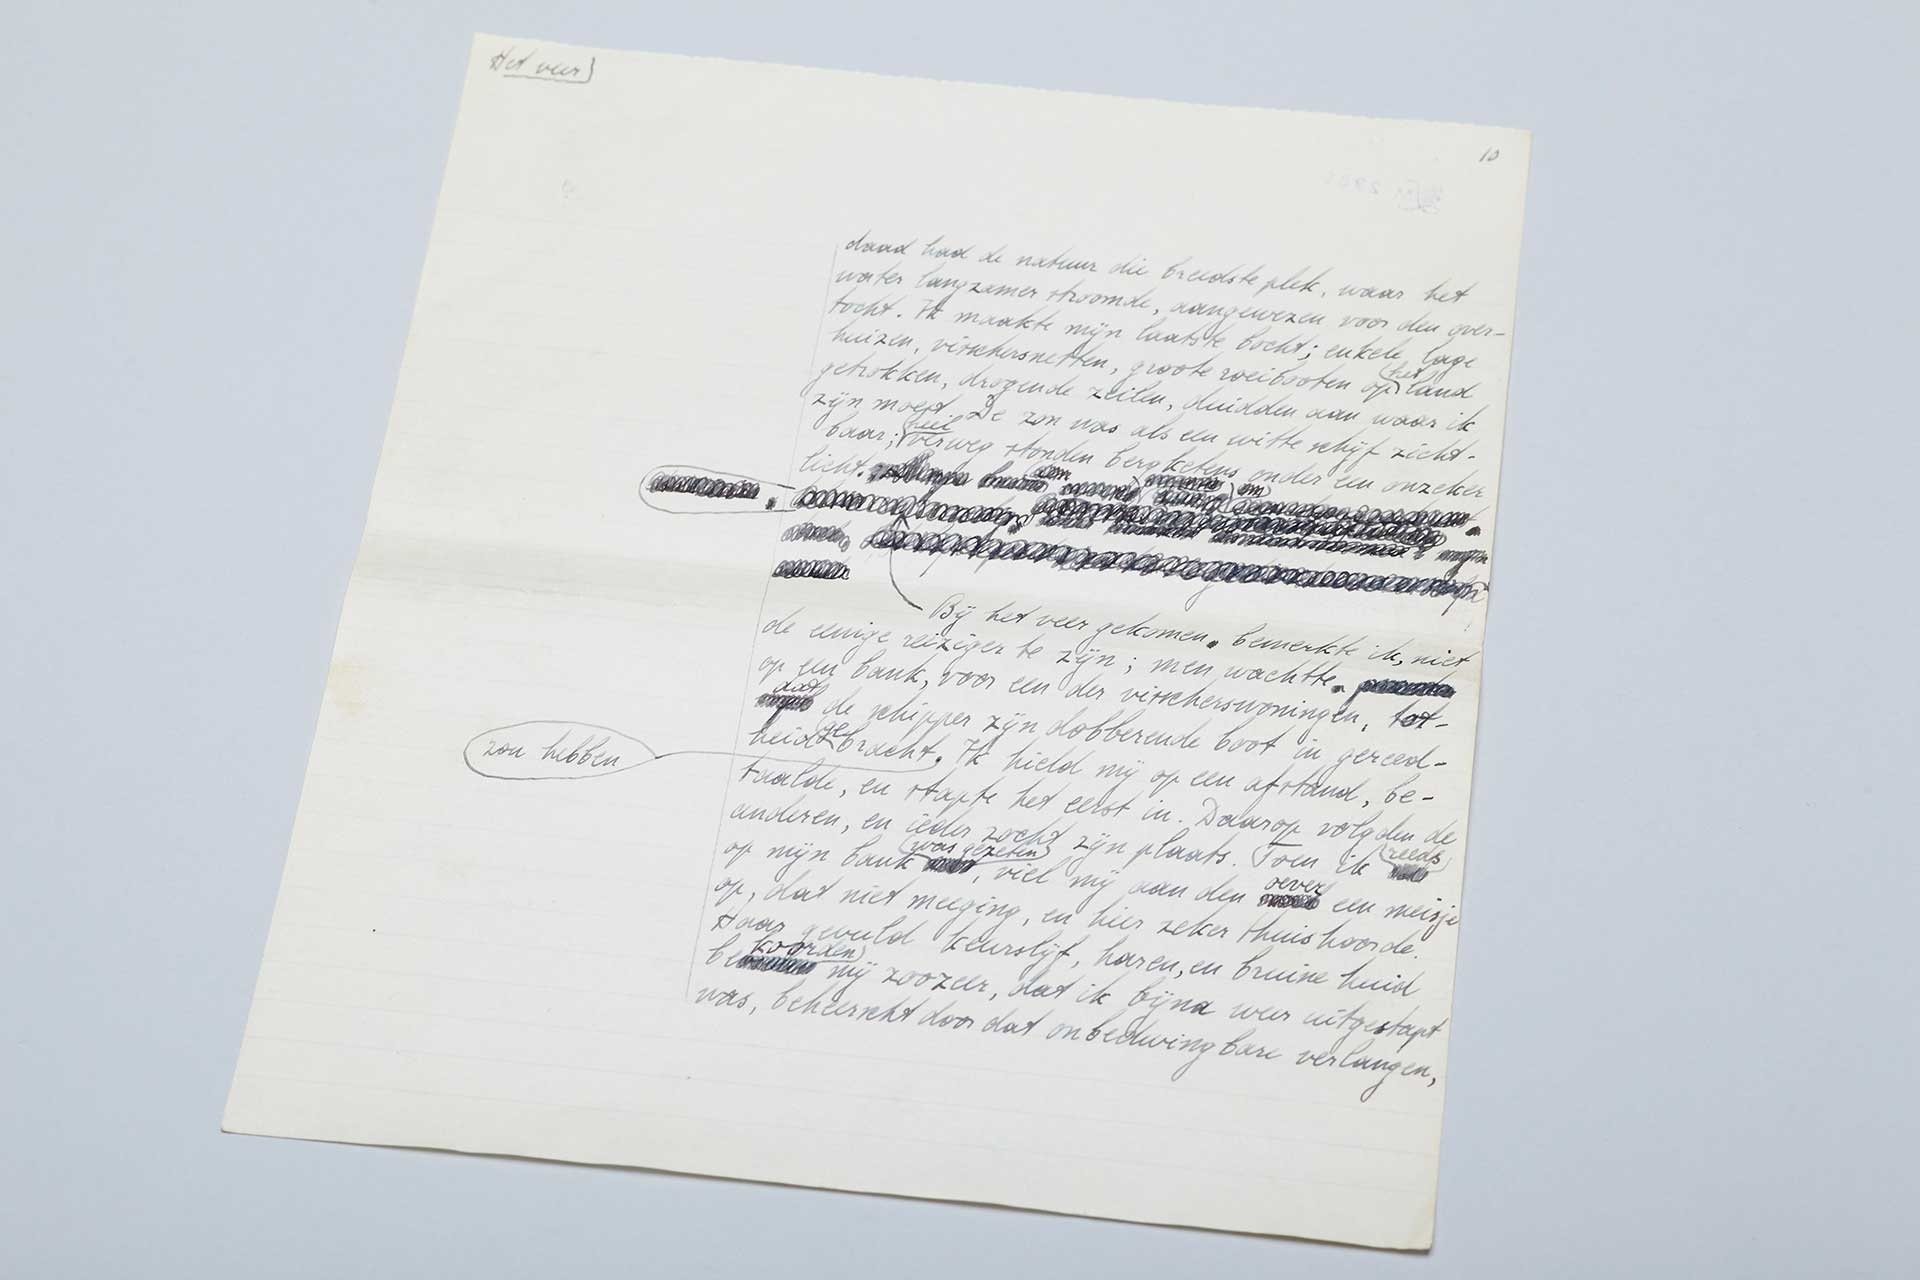 Het veer
10
daad had de natuur die breedste plek, waar het
water langzamer stroomde, aangewezen voor den over-
tocht. Ik maakte mijn laatste bocht; enkele lage
huizen, visschersnetten, groote roeibooten op het land
getrokken, drogende zeilen, duidden aan waar ik
zijn moest. De zon was als een witte schijf zicht-
baar; heel verweg stonden bergketens onder een onzeker
licht.
Bij het veer gekomen, bemerkte ik, niet
de eenige reiziger te zijn; men wachtte
op een bank, voor een der visscherswoningen, tot-
dat de schipper zijn dobberende boot in gereed-
zou hebben
heid gebracht. Ik hield mij op een afstand, be-
taalde, en stapte het eerst in. Daarop volgden de
anderen, en ieder zocht zijn plaats. Toen ik reeds
op mijn bank was gezeten, viel mij aan den oever een meisje
op, dat niet meeging, en hier zeker thuishoorde.
Haar gevuld keurslijf, haren, en bruine huid
bekoorden mij zoozeer, dat ik bijna weer uitgestapt
was, beheerscht door dat onbedwingbare verlangen,